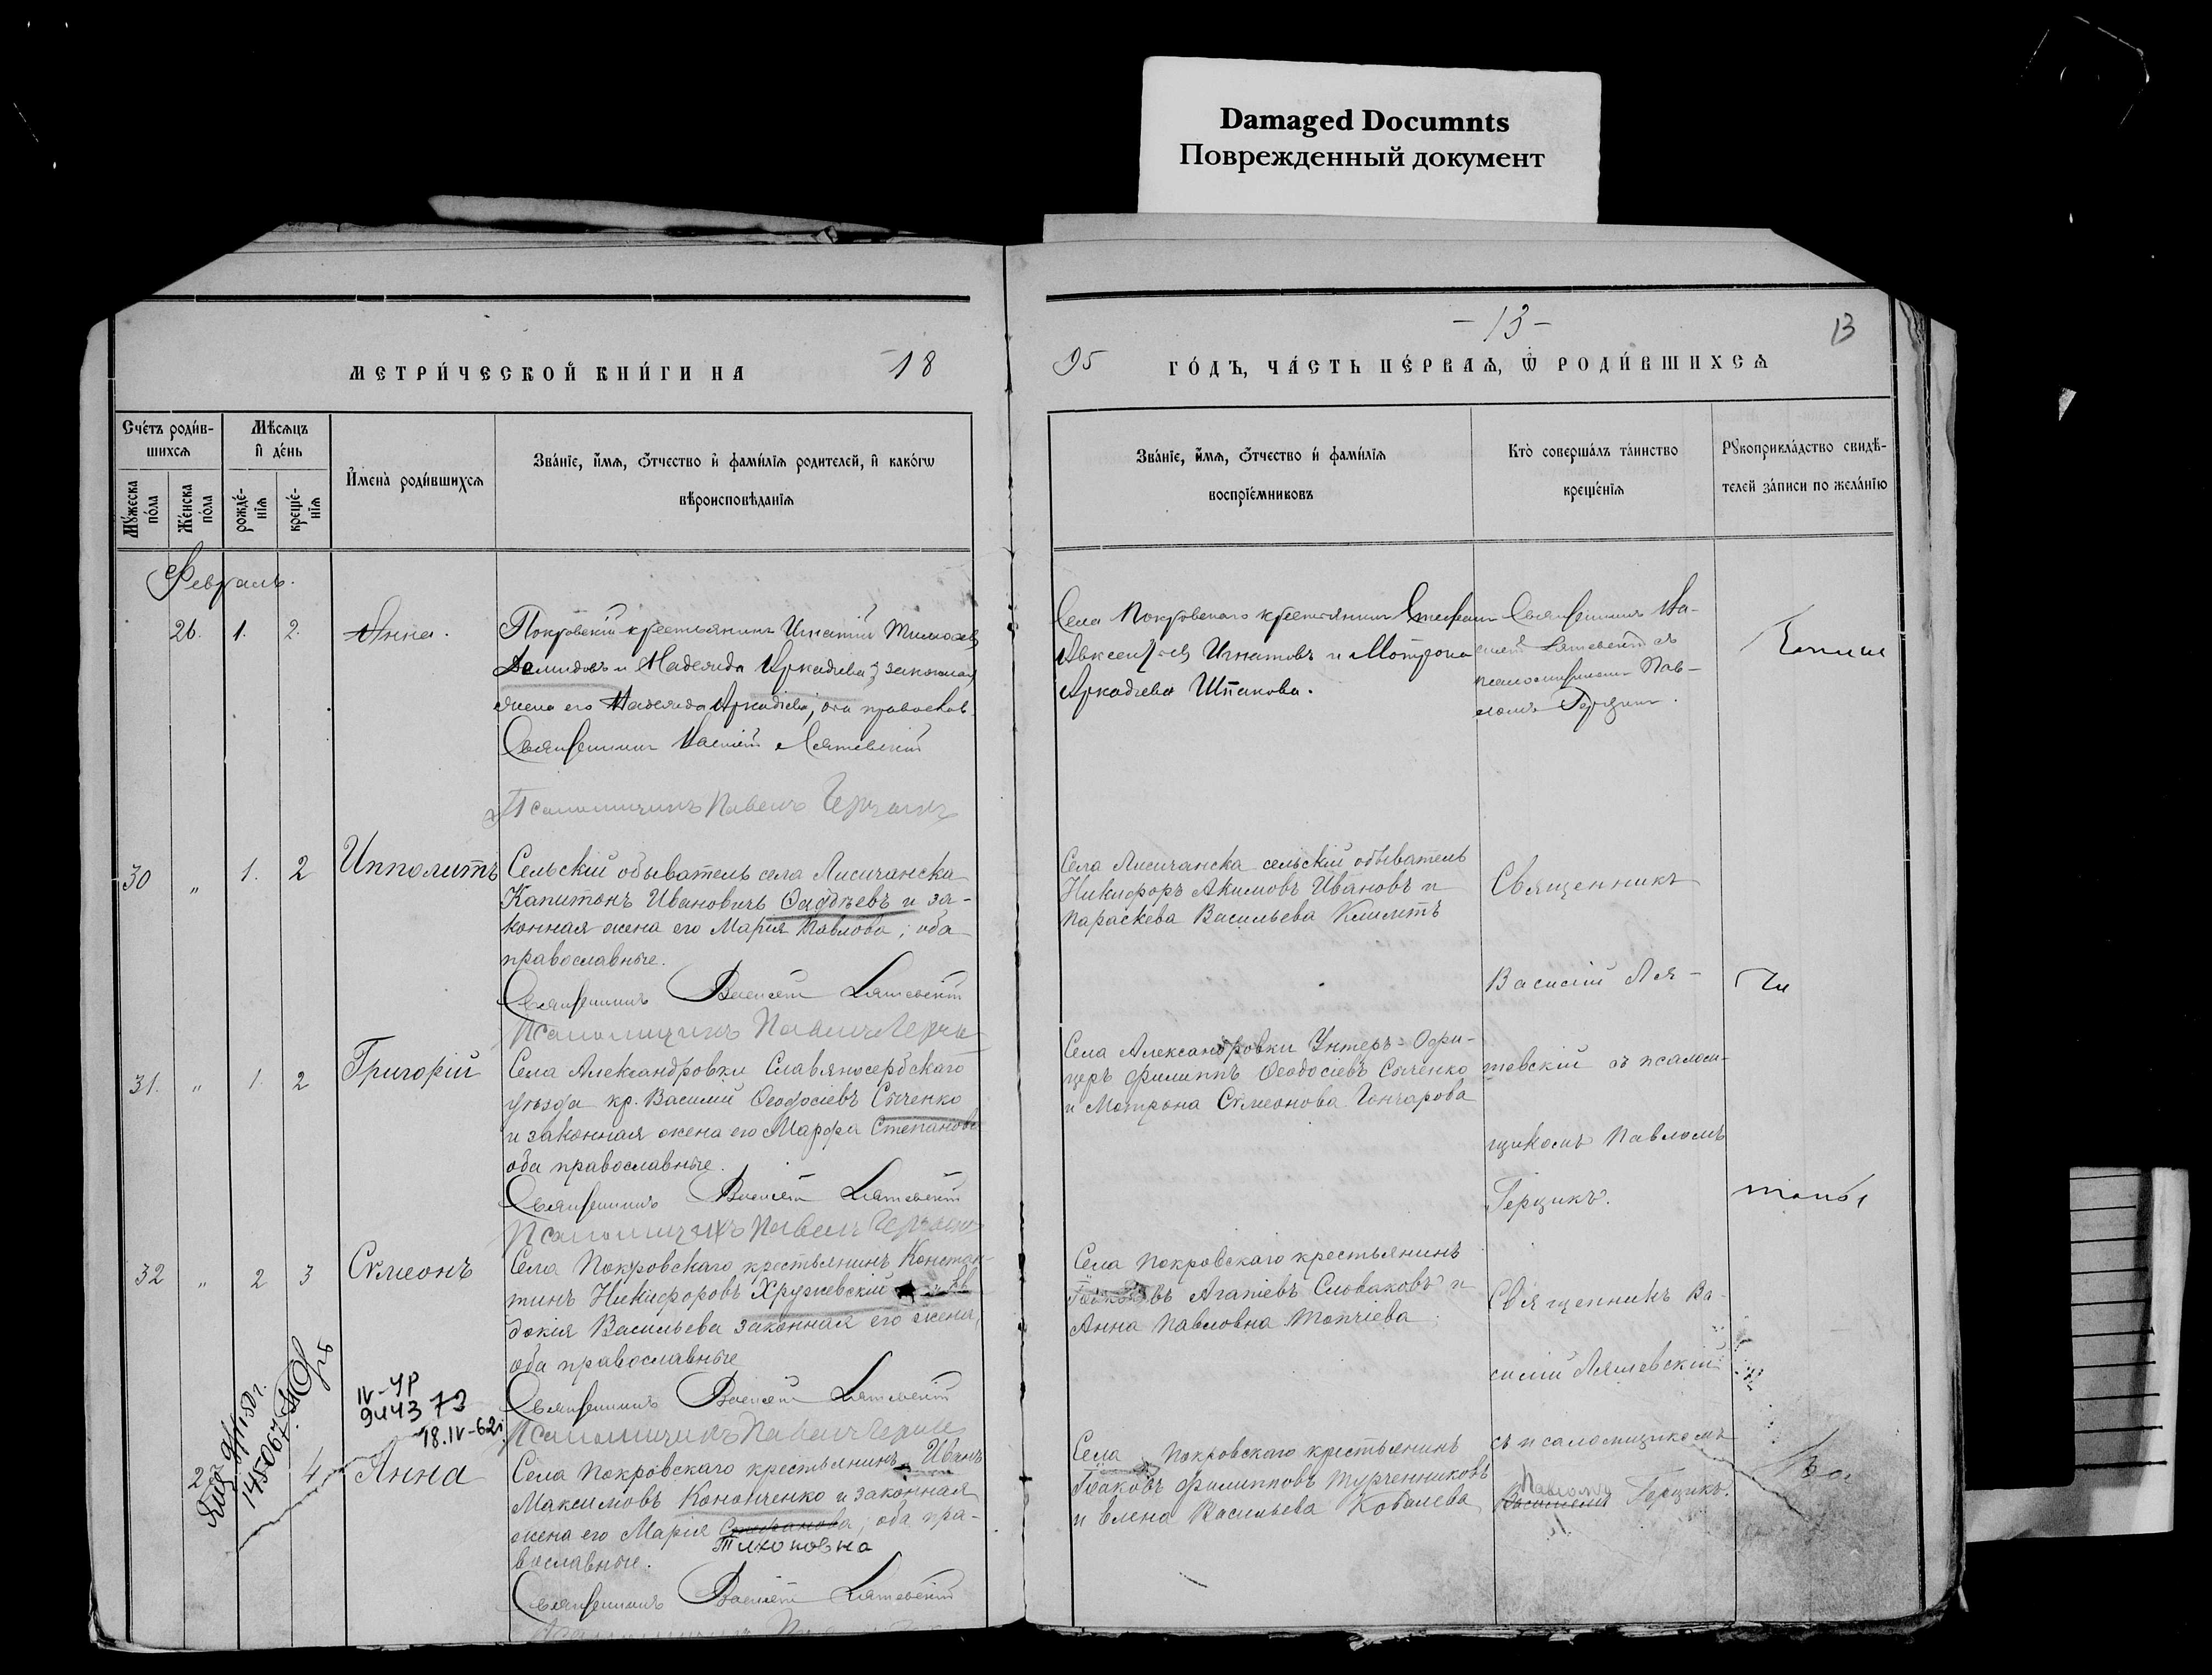 Damaged Documnts
Поврежденный документ
- 13 -
13
МЕТРИ́ЧЕСКОЙ КНИ́ГИ НА 18
95 ГО́ДЪ, ЧА́СТЬ ПЕ́РВАѦ, Ѡ҆ РОДИ́ВШИХСѦ
Сче́тъ роди́в-
шихсѧ
Мѣ́сѧцъ
и҆ де́нь
И҆мена̀ роди́вшихсѧ
Зва́нїе, и҆́мѧ, ѻ҆́тчество и҆ фами́лїѧ родителей, и҆ како́гѡ
вѣроисповѣ́данїѧ
Мꙋ́жеска
по́ла
Же́нска
по́ла
рожде́-
нїѧ
креще́-
нїѧ
Зва́нїе, и҆́мѧ, ѻ҆́тчество и҆ фами́лїѧ
воспрїе́мниковъ
Кто̀ соверша́лъ та́инство
креще́нїѧ
Рꙋкоприкла́дство свидѣ́-
телей за́писи по жела́нїю
Февраль.
26. 1. 2. Анна.
Покровскій крестьянинъ Игнатій
и Надежда Аркадіева, законная
жена его Надежда Аркадіева, оба православ.
Священникъ Василій Ляшевскій
Псаломщикъ Павелъ Герцикъ
Села Покровскаго крестьянинъ Стефанъ
Игнатовъ и Мотрона
Аркадіева Шпакова.
Священникъ Ва-
силій Ляшевскій съ
псаломщикомъ Пав-
ломъ Герцикъ.
30 „ 1. 2 Ипполитъ
Сельскій обыватель села Лисичанска
Капитонъ Ивановичъ Фаддѣевъ и за-
конная жена его Марія Павлова, оба
православные.
Священникъ Василій Ляшевскій
Псаломщикъ Павелъ Герцикъ
Села Лисичанска сельскій обыватель
Никифоръ Акимовъ Ивановъ и
Параскева Васильева Климетъ
Священникъ
Василій Ля-
31. „ 1. 2 Григорій
Села Александровки Славяносербскаго
уѣзда кр. Василій Ѳеодосіевъ Сыченко
и законная жена его Марфа Степанова
оба православные.
Священникъ Василій Ляшевскій
Псаломщикъ Павелъ Герцикъ
Села Александровки Унтеръ-Офи-
церъ Филиппъ Ѳеодосіевъ Сыченко
и Мотрона Сѵмеонова Гончарова
шевскій съ псалом-
щикомъ Павломъ
Герцикъ.
32 „ 2 3 Сѵмеонъ
Села Покровскаго крестьянинъ Констан-
тинъ Никифоровъ Хружевскій и Ев
докія Васильева законная его жена,
оба православные
Священникъ Василій Ляшевскій
Псаломщикъ Павелъ Герцикъ
Села Покровскаго крестьянинъ
Агапіевъ Словаковъ и
Анна Павловна Топчіева.
Священникъ Ва-
силій Ляшевскій
IV-УР
944373
18.IV-62г.
145067
4 Анна
Села Покровскаго крестьянинъ Иванъ
Максимовъ Кононченко и законная
жена его Марія Стефанова, оба пра-
Тихоновна
вославные.
Священникъ Василій Ляшевскій
Села Покровскаго крестьянинъ
Іаковъ Филипповъ Турченниковъ
и Елена Васильева Ковалева
съ псаломщикомъ
Павломъ
Василіемъ Герцикъ.